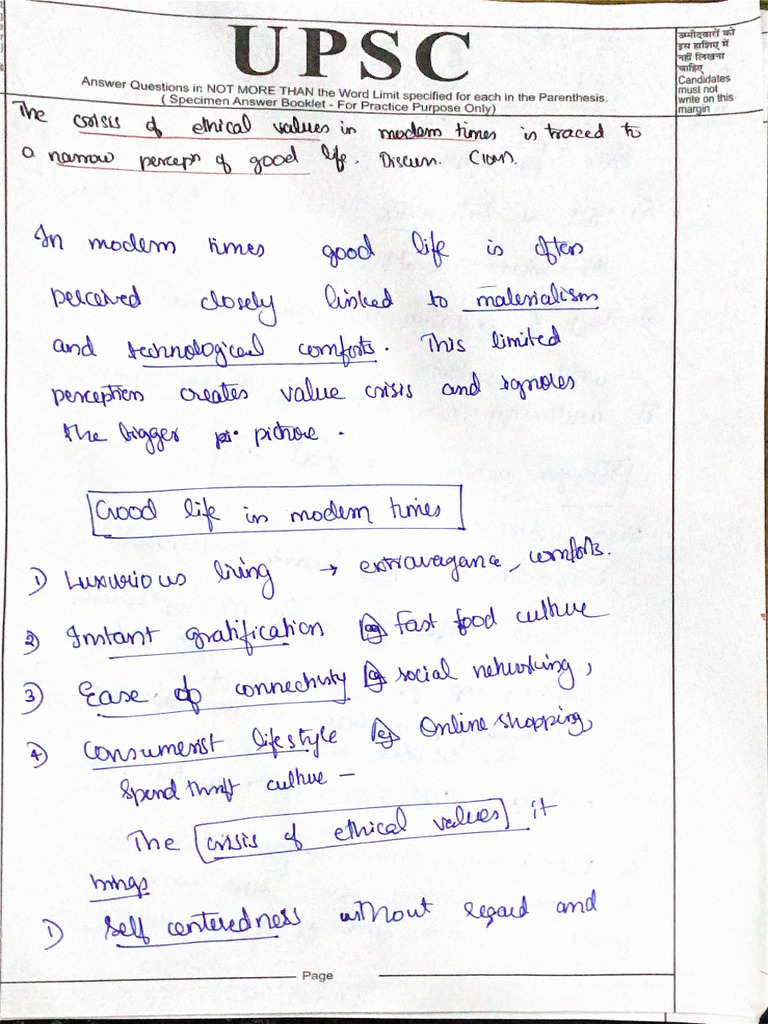 UPSC
Answer Questions in NOT MORE THAN the Word Limit specified for each in the Parenthesis.
( Specimen Answer Booklet - For Practice Purpose Only)
उम्मीदवारों को
इस हाशिए में
नहीं लिखना
चाहिए
Candidates
must not
write on this
margin
The crisis of ethical values in modern times is traced to
a narrow percepn of good life. Discuss. (10m)
In modern times good life is often
perceived closely linked to materialism
and technological comforts. This limited
perception creates value crisis and ignores
the bigger picture.
Good life in modern times
1) Luxurious living → extravagance, comforts.
2) Instant gratification eg Fast food culture
3) Ease of connectivity eg social networking,
4) Consumerist lifestyle eg Online shopping,
Spend thrift culture –
The crisis of ethical values it
brings
1) Self centeredness without regard and
Page